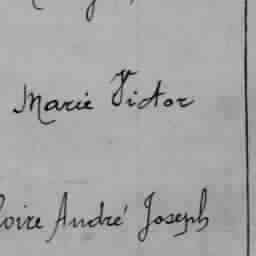 Marie Victor
loire André Joseph